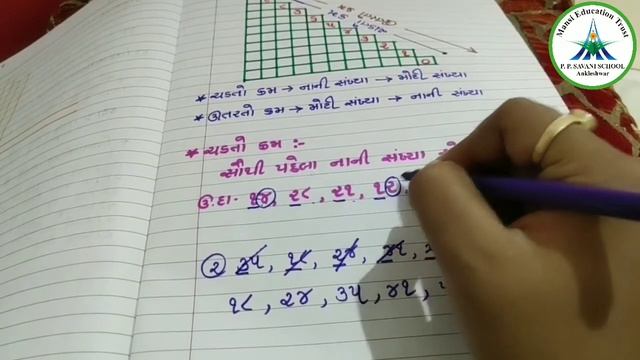 Mansi Education Trust
P. P. SAVANI SCHOOL
Ankleshwar
* ચડતો ક્રમ → નાની સંખ્યા → મોટી સંખ્યા
* ઉતરતો ક્રમ → મોટી સંખ્યા → નાની સંખ્યા
* ચડતો ક્રમ :-
સૌથી પહેલા નાની સંખ્યા
ઉ.દા. ૧૪, ૨૮, ૨૧, ૧૨
૨ ૩૫, ૧૮, ૨૪, ૪૧,
૧૮, ૨૪, ૩૫, ૪૧,